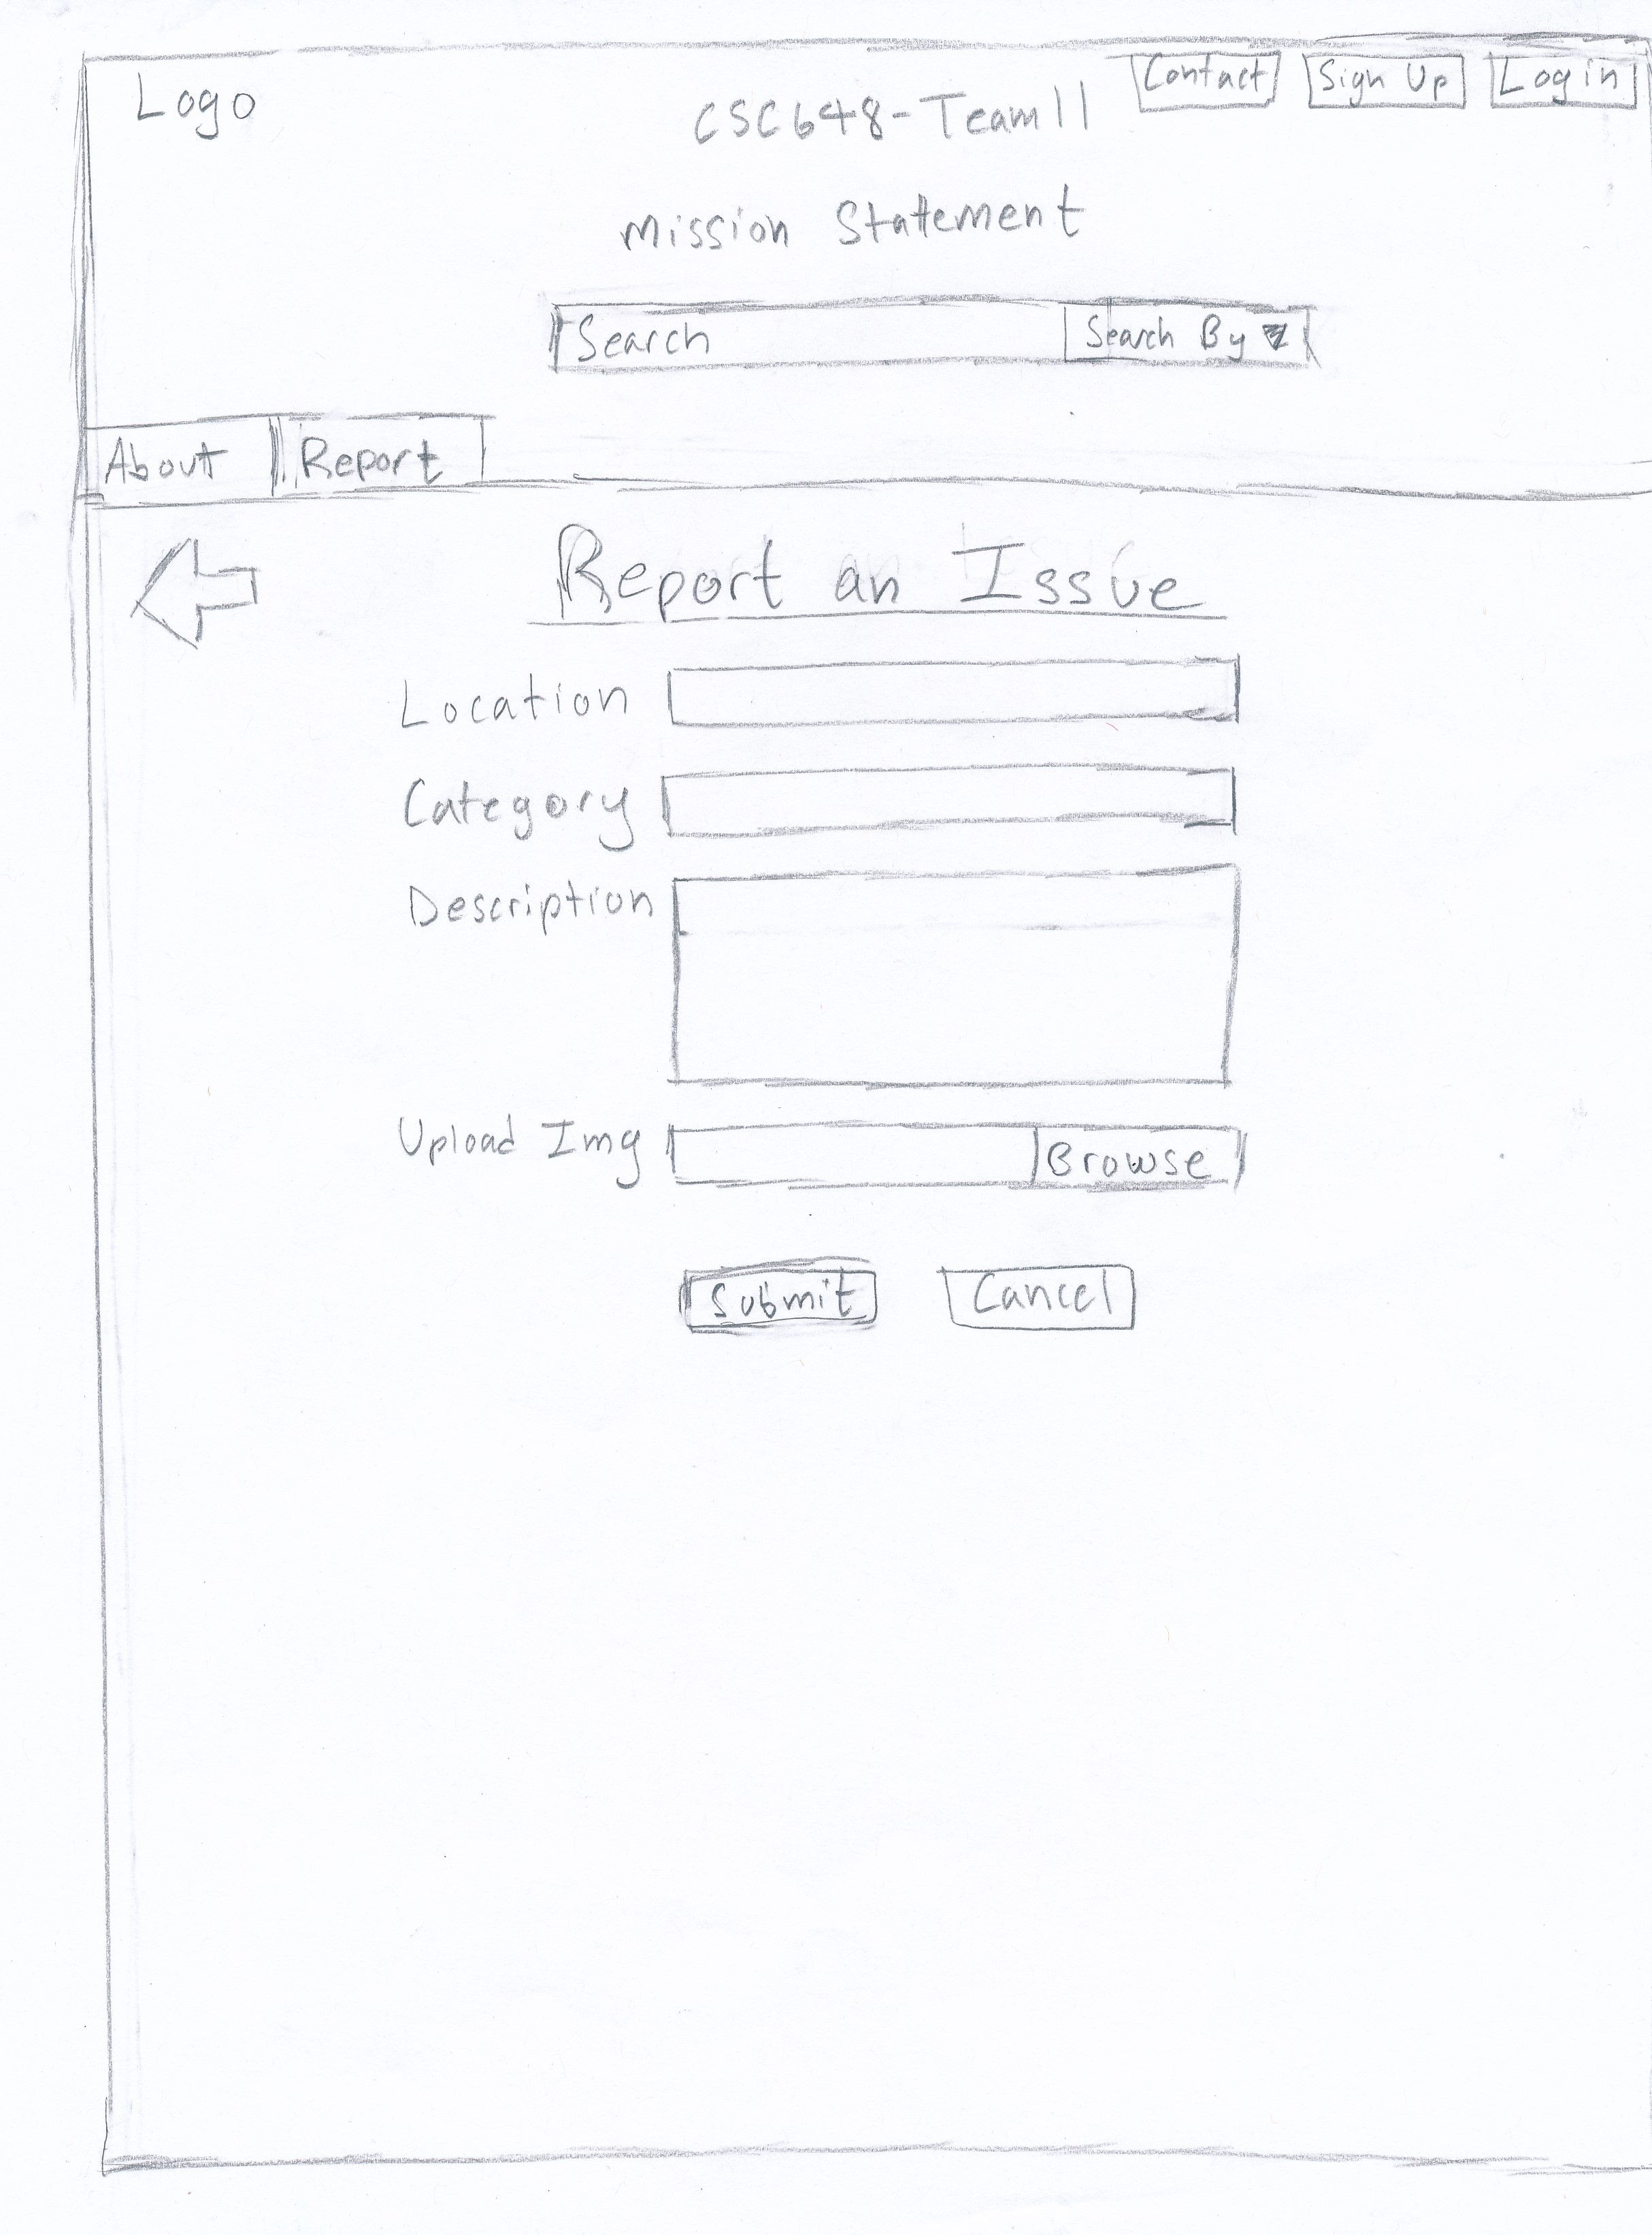 Logo
CSC648-Team11
Contact
Sign Up
Login
Mission Statement
Search
Search By
About
Report
Report an Issue
Location
Category
Description
Upload Img
Browse
Submit
Cancel